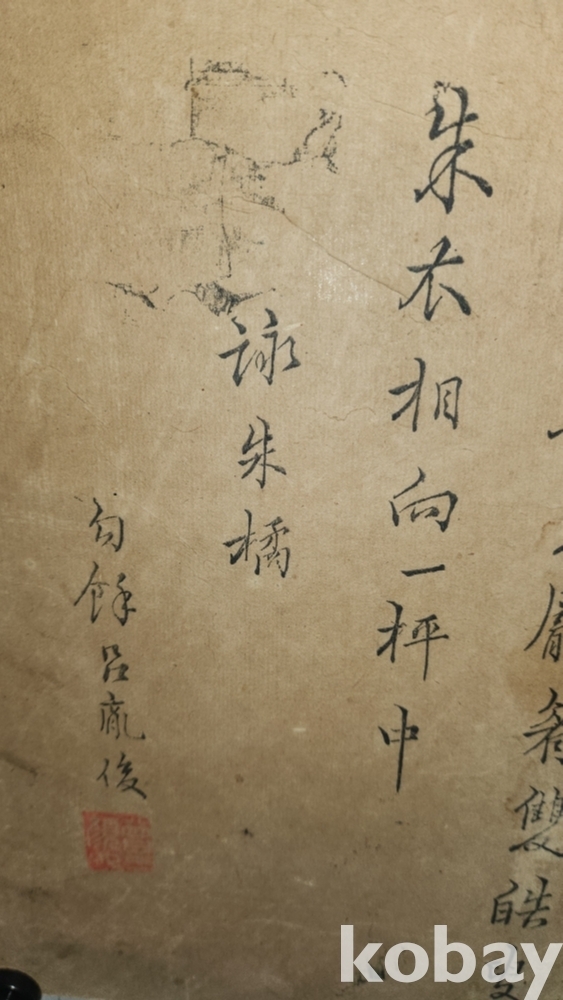 眉翁雙皓
朱衣相向一枰中
詠朱橘
句餘呂胤俊
kobay